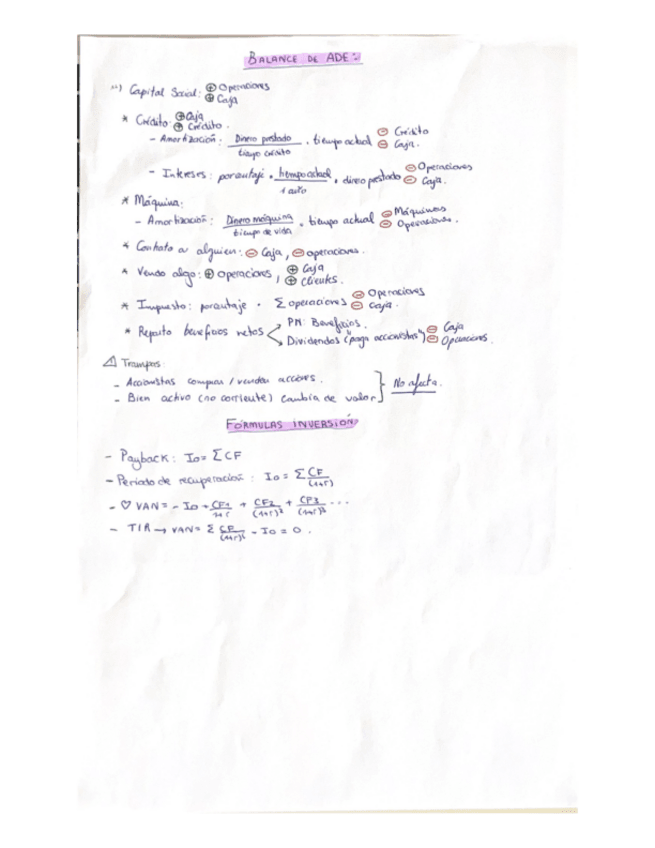 BALANCE DE ADE:
") Capital Social: ⊕ Operaciones
⊕ Caja
* Crédito: ⊕ Caja
⊕ Crédito.
- Amortización: Dinero prestado / tiempo crédito · tiempo actual ⊖ Crédito
⊖ Caja.
- Intereses: porcentaje · tiempo actual / 1 año · dinero prestado ⊖ Operaciones
⊖ Caja.
* Máquina:
- Amortización: Dinero máquina / tiempo de vida · tiempo actual ⊖ Máquinas
⊖ Operaciones.
* Contrato a alguien: ⊖ Caja, ⊖ operaciones.
* Vendo algo: ⊕ operaciones, ⊕ Caja
⊕ clientes.
* Impuesto: porcentaje · Σ operaciones ⊖ Operaciones
⊖ Caja.
* Reparto beneficios netos < PN: Beneficios.
Dividendos ("paga accionistas") ⊖ Caja
⊖ Operaciones.
⚠ Trampas:
- Accionistas compran / venden acciones.
- Bien activo (no corriente) cambia de valor } No afecta.
FÓRMULAS INVERSIÓN
- Payback: Io = Σ CF
- Periodo de recuperación: Io = Σ CF / (1+r)
- ♡ VAN = - Io + CF1 / 1+r + CF2 / (1+r)² + CF3 / (1+r)³ ...
- TIR → VAN = Σ CF / (1+r)ᵗ - Io = 0.